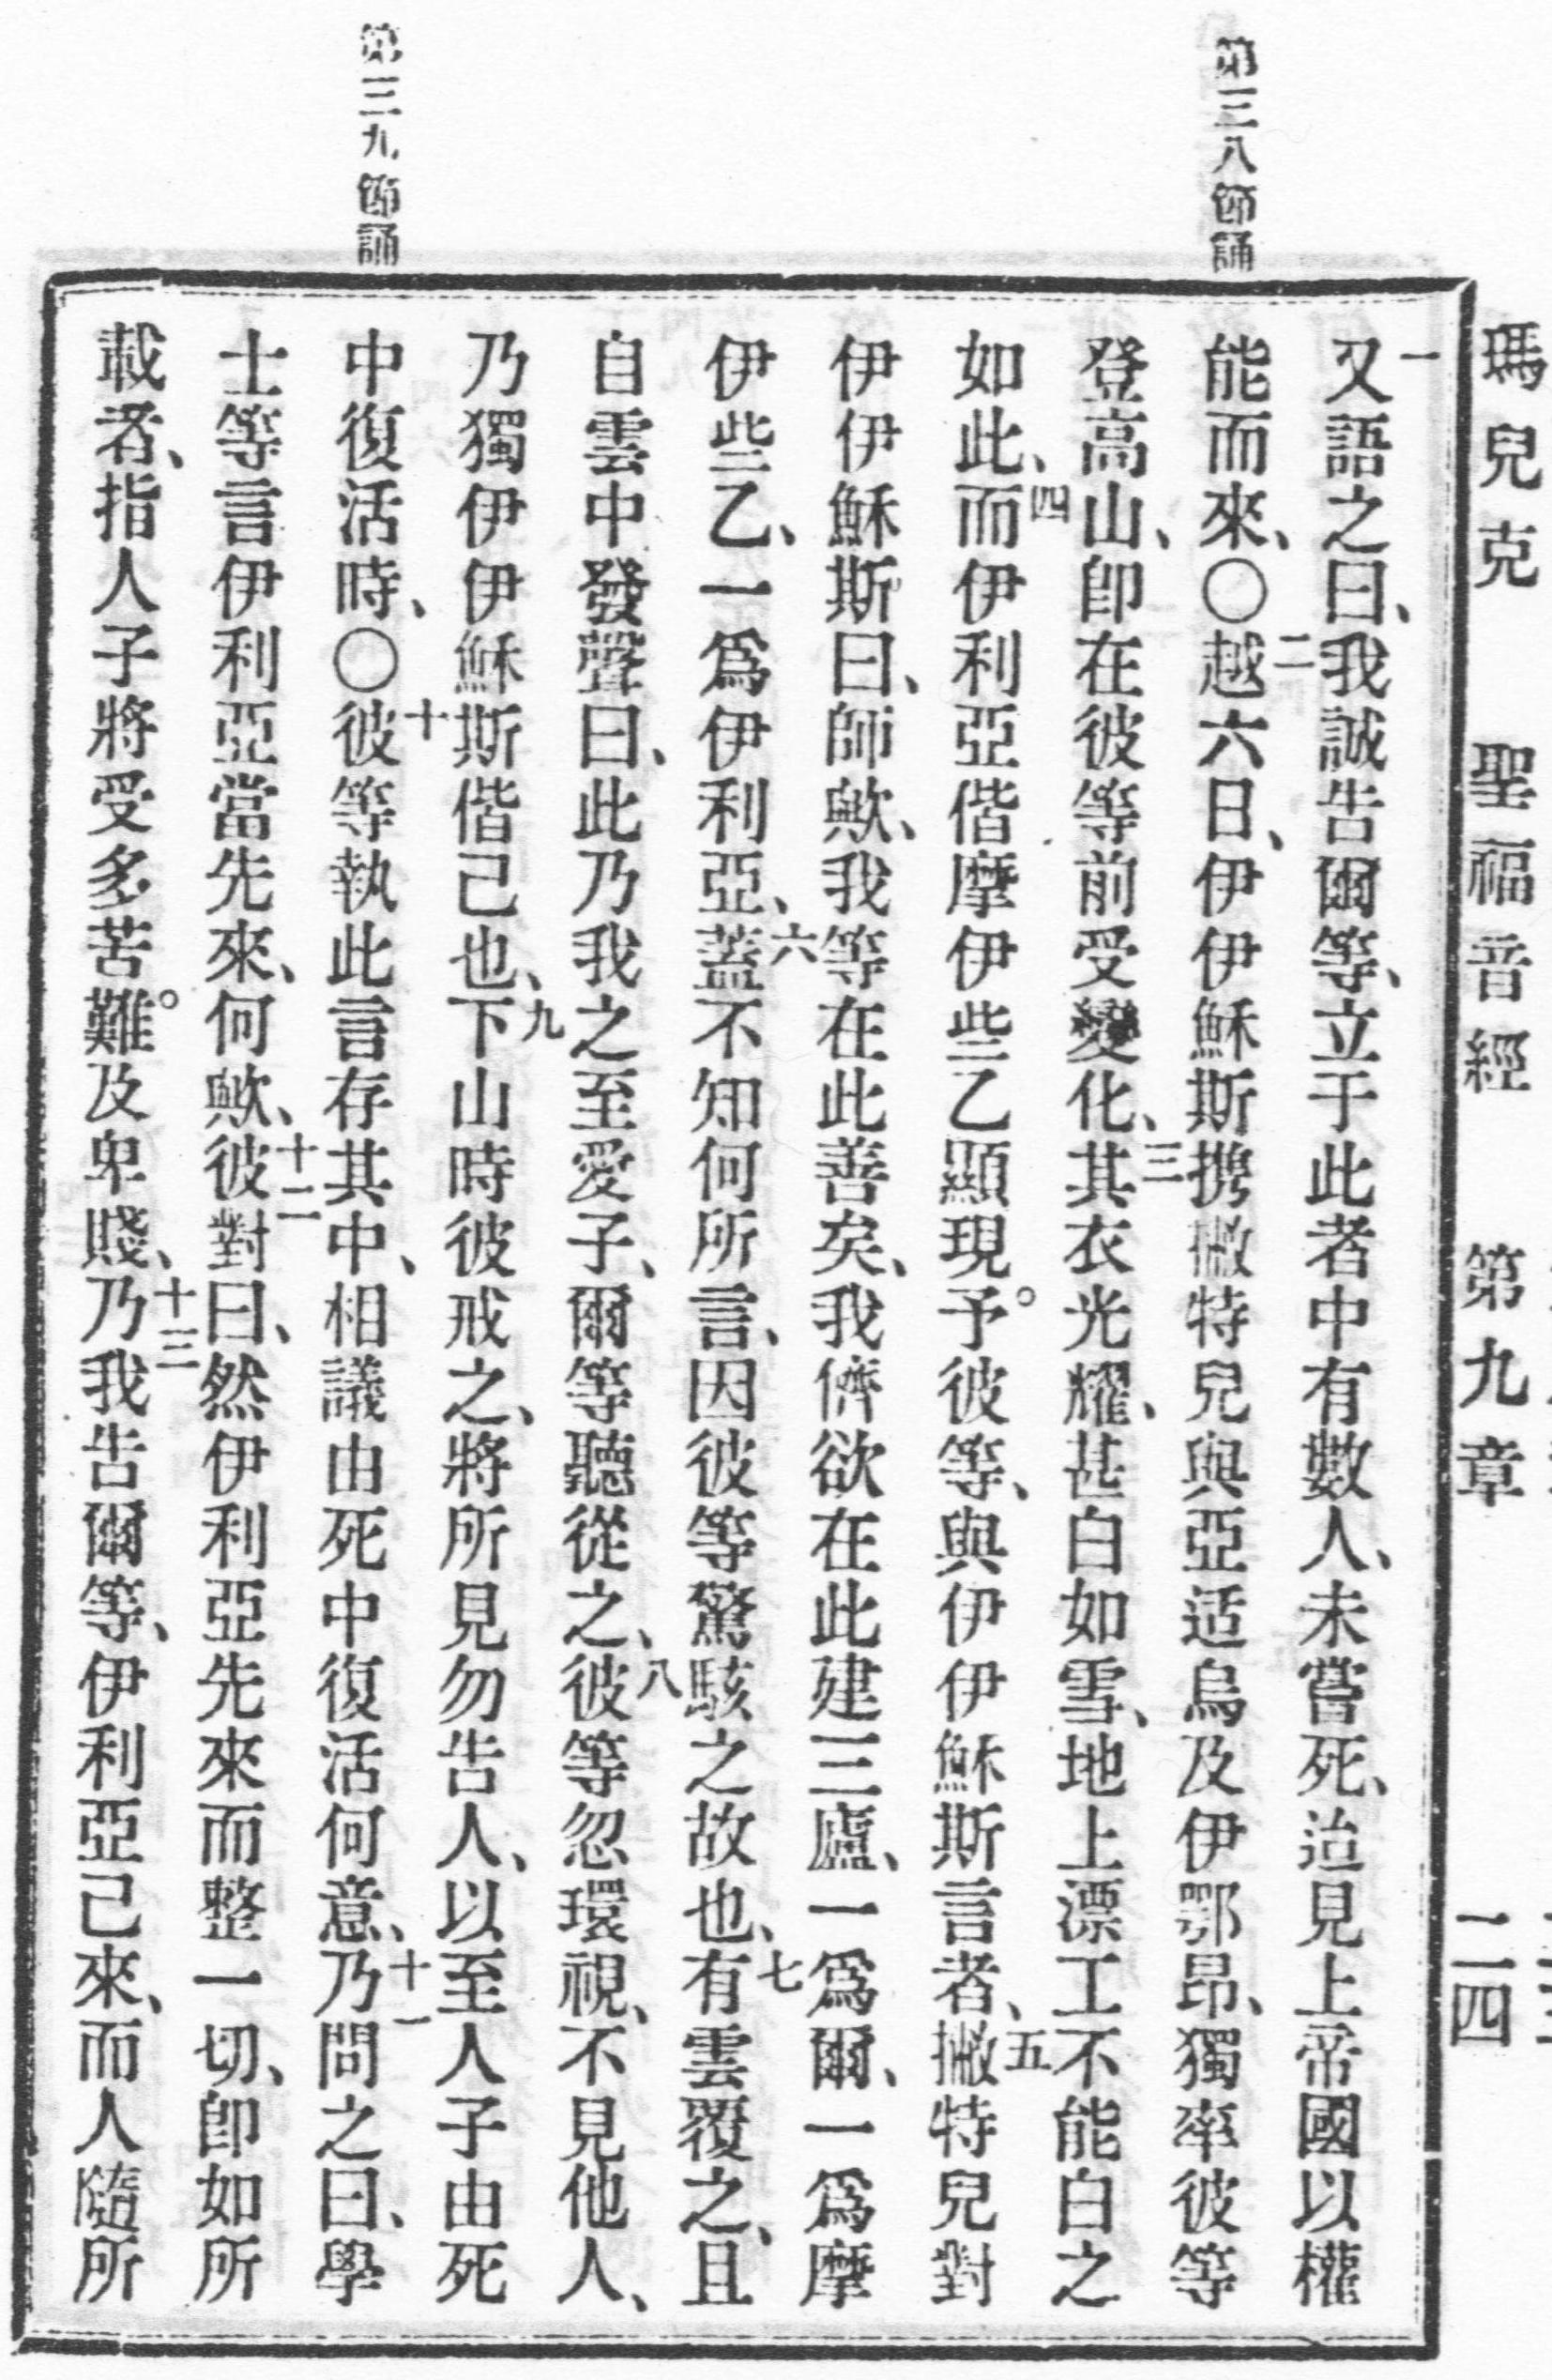 瑪兒克 聖福音經 第九章 二四
第三八節誦
一又語之曰、我誠告爾等、立于此者中有數人、未嘗死、迨見上帝國以權
能而來、〇二越六日、伊伊穌斯携撇特兒與亞适烏及伊鄂昂、獨率彼等
登高山、卽在彼等前受變化、三其衣光耀、甚白如雪、地上漂工不能白之
如此、四而伊利亞偕摩伊些乙顯現。予彼等、與伊伊穌斯言者、五撇特兒對
伊伊穌斯曰、師歟、我等在此善矣、我儕欲在此建三廬、一爲爾、一爲摩
伊些乙、一爲伊利亞、六蓋不知何所言、因彼等驚駭之故也、七有雲覆之、且
自雲中發聲曰、此乃我之至愛子、爾等聽從之、八彼等忽環視、不見他人、
乃獨伊伊穌斯偕己也、九下山時彼戒之、將所見勿告人、以至人子由死
第三九節誦
中復活時、〇十彼等執此言存其中、相議由死中復活何意、十一乃問之曰、學
士等言伊利亞當先來、何歟、十二彼對曰、然伊利亞先來而整一切、卽如所
載者、指人子將受多苦難。及卑賤、十三乃我告爾等、伊利亞己來、而人隨所